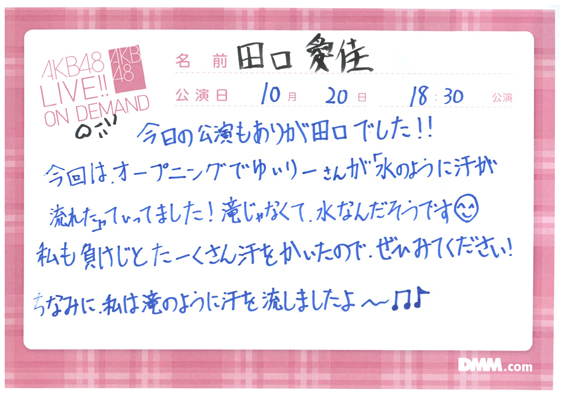 AKB48
LIVE!!
ON DEMAND
AKB
48
名 前 田口 愛佳
公演日 10月 20日 18:30 公演
今日の公演もありが田口でした!!
今回は、オープニングでゆいりーさんが「水のように汗が
流れた」っていってました!滝じゃなくて、水なんだそうです
私も負けじとたーくさん汗をかいたので、ぜひみてください!
ちなみに、私は滝のように汗を流しましたよ〜♫♪
DMM.com